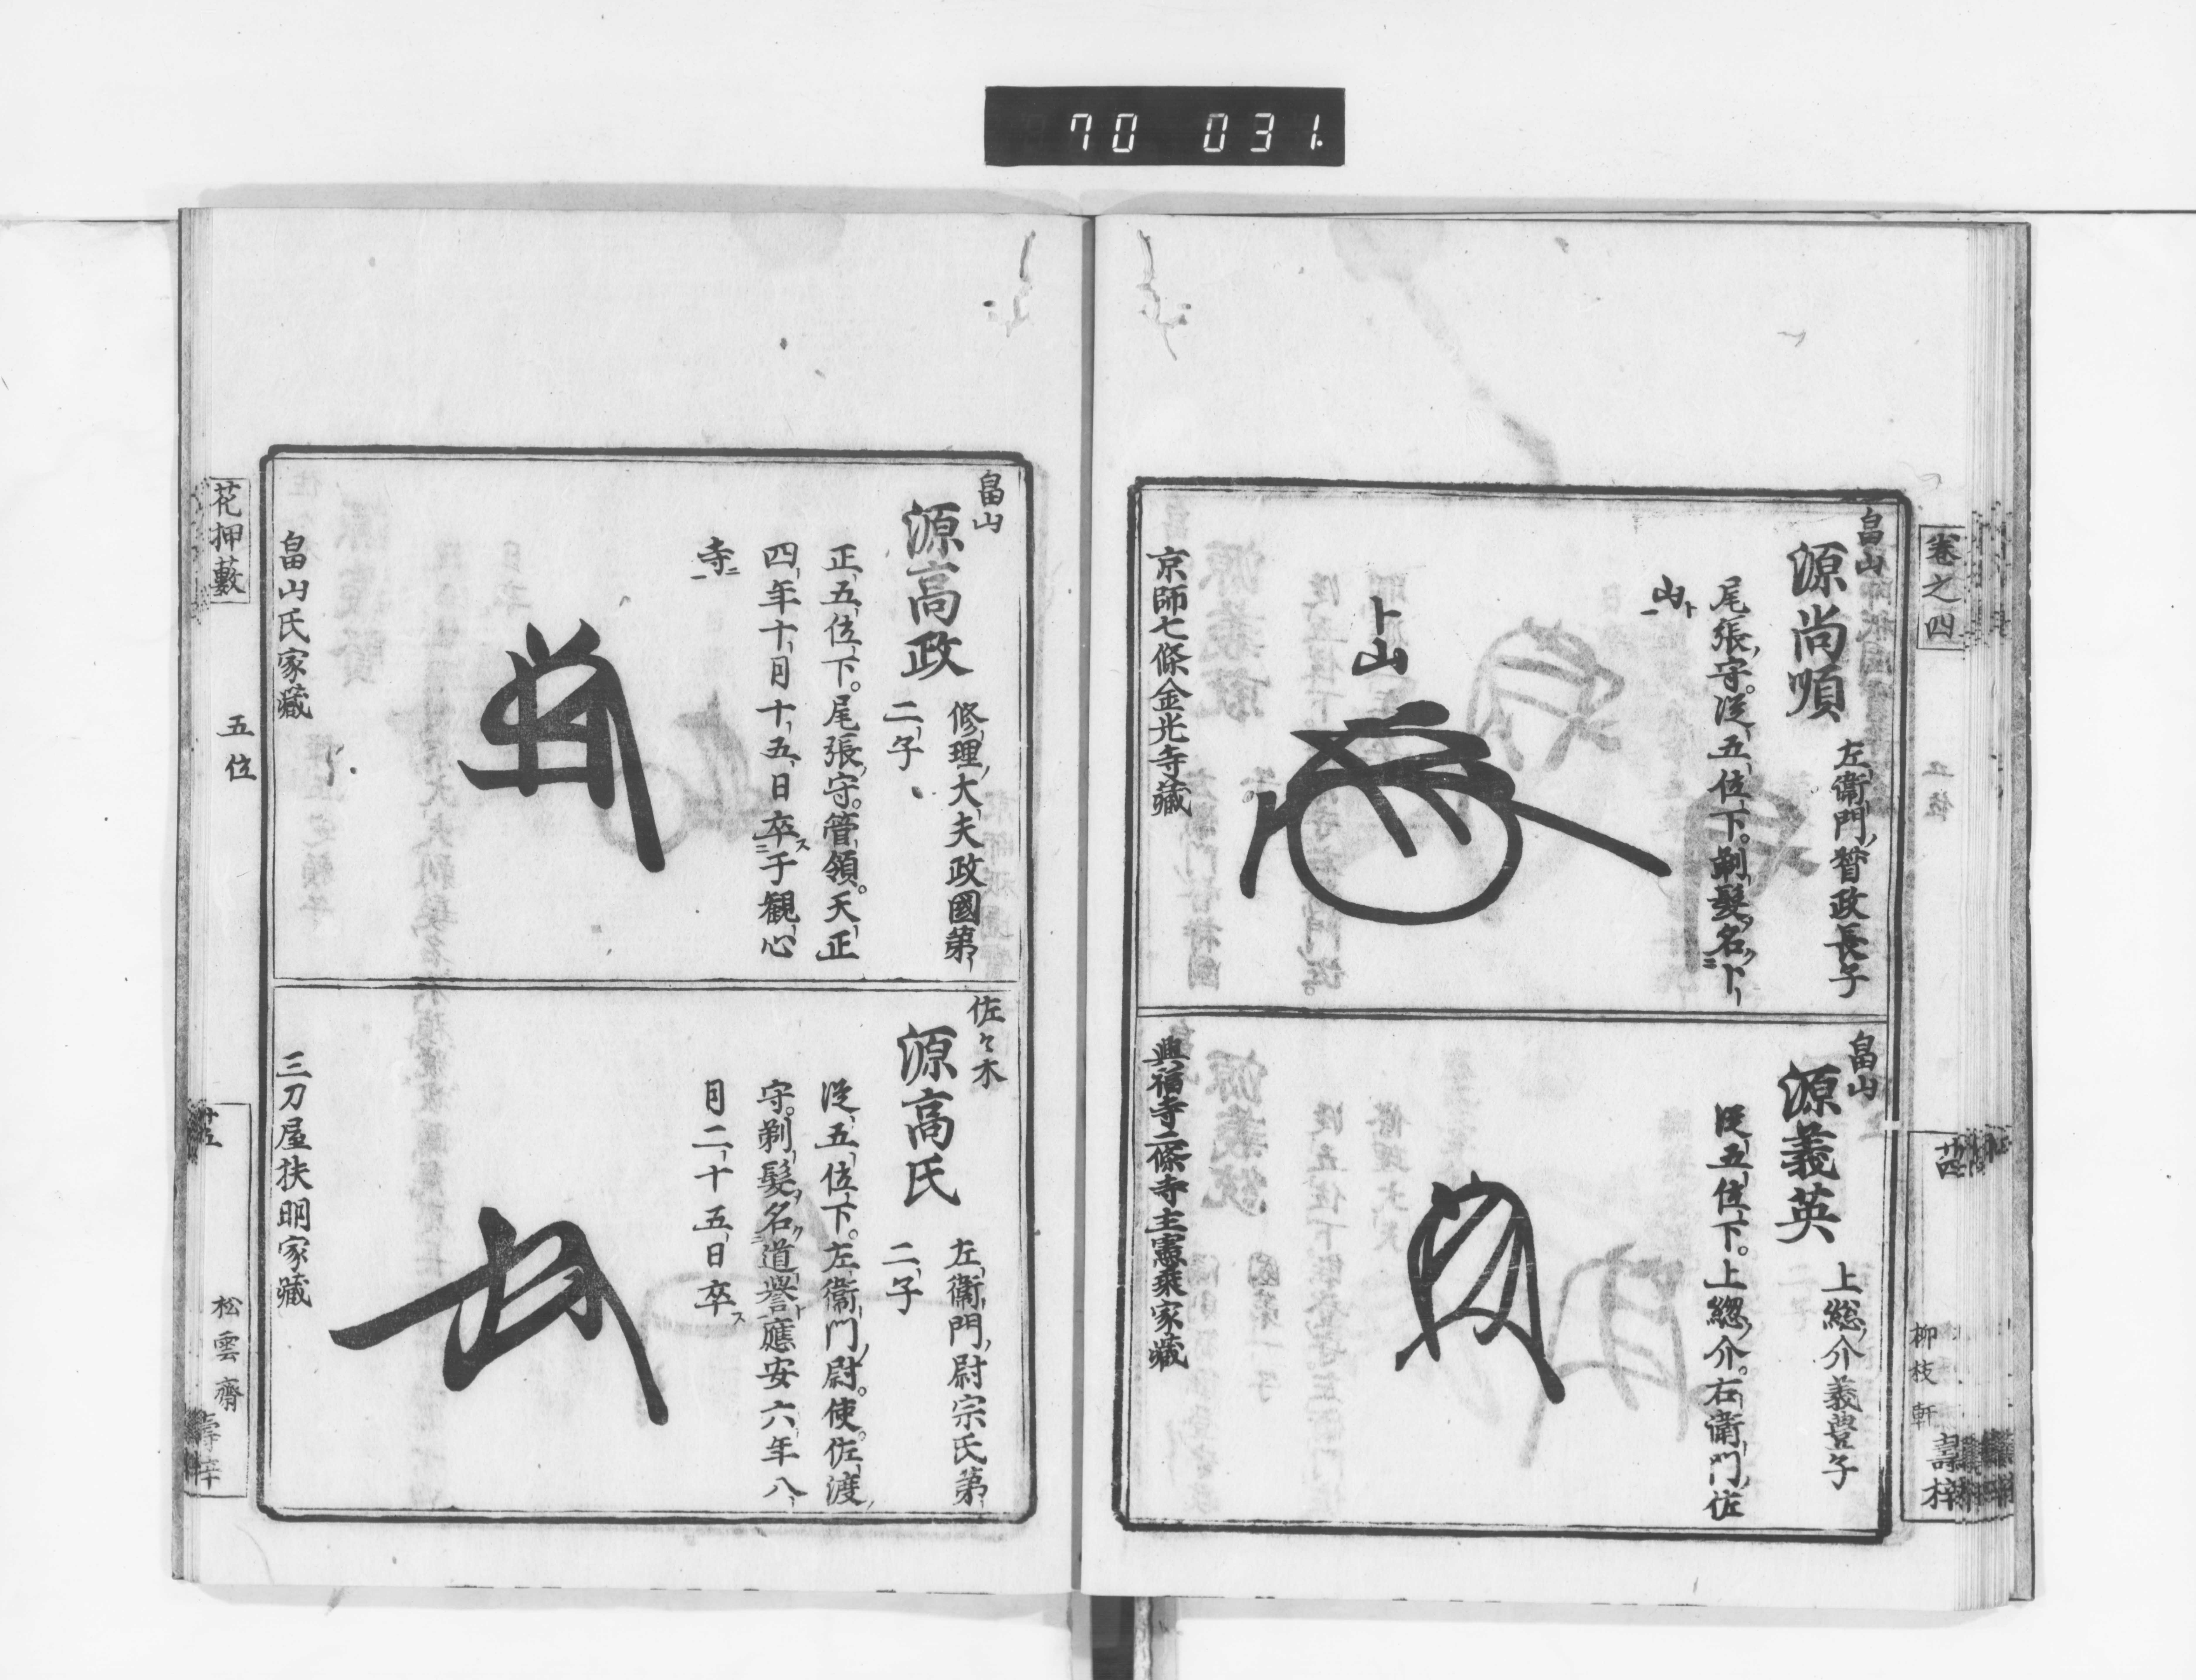 70 031.
卷之四
五位
廿四
柳枝軒
壽梓
畠山
源尚順
左衞門督政長子
尾張守。從五位下。剃髮名卜
山
卜山
京師七條金光寺藏
畠山
源義英
上総介義豊子
從五位下。上総介。右衞門佐
興福寺二條寺主憲乗家藏
畠山
源高政
修理大夫政國第
二子
正五位下。尾張守。管領。天正
四年十月十五日卒于観心
寺
畠山氏家藏
佐々木
源高氏
左衞門尉宗氏第
二子
從五位下。左衞門尉。使。佐渡
守。剃髮名道誉應安六年八
月二十五日卒
三刀屋扶明家藏
花押藪
五位
廿五
松雲齋
壽梓